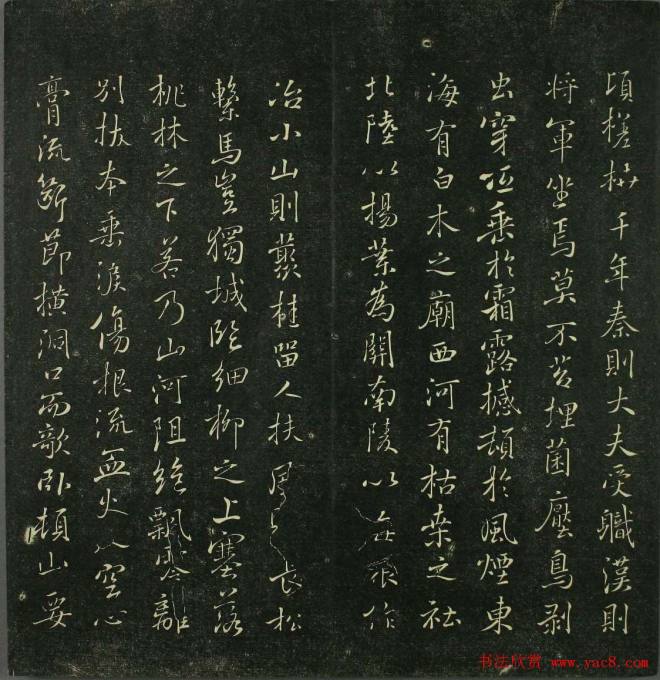 頃槎枿千年秦則大夫受職漢則
将軍坐焉莫不苔埋菌壓鳥剥
虫穿低垂於霜露撼頓於風煙東
海有白木之廟西河有枯桒之社
北陸以揚葉為關南陵以梅根作
冶小山則叢桂留人扶風則長松
繋馬豈獨城臨細柳之上塞落
桃林之下若乃山河阻絶飄零離
別拔本垂淚傷根流血火入空心
膏流斷節橫洞口而欹卧頓山要
书法欣赏 www.yac8.com